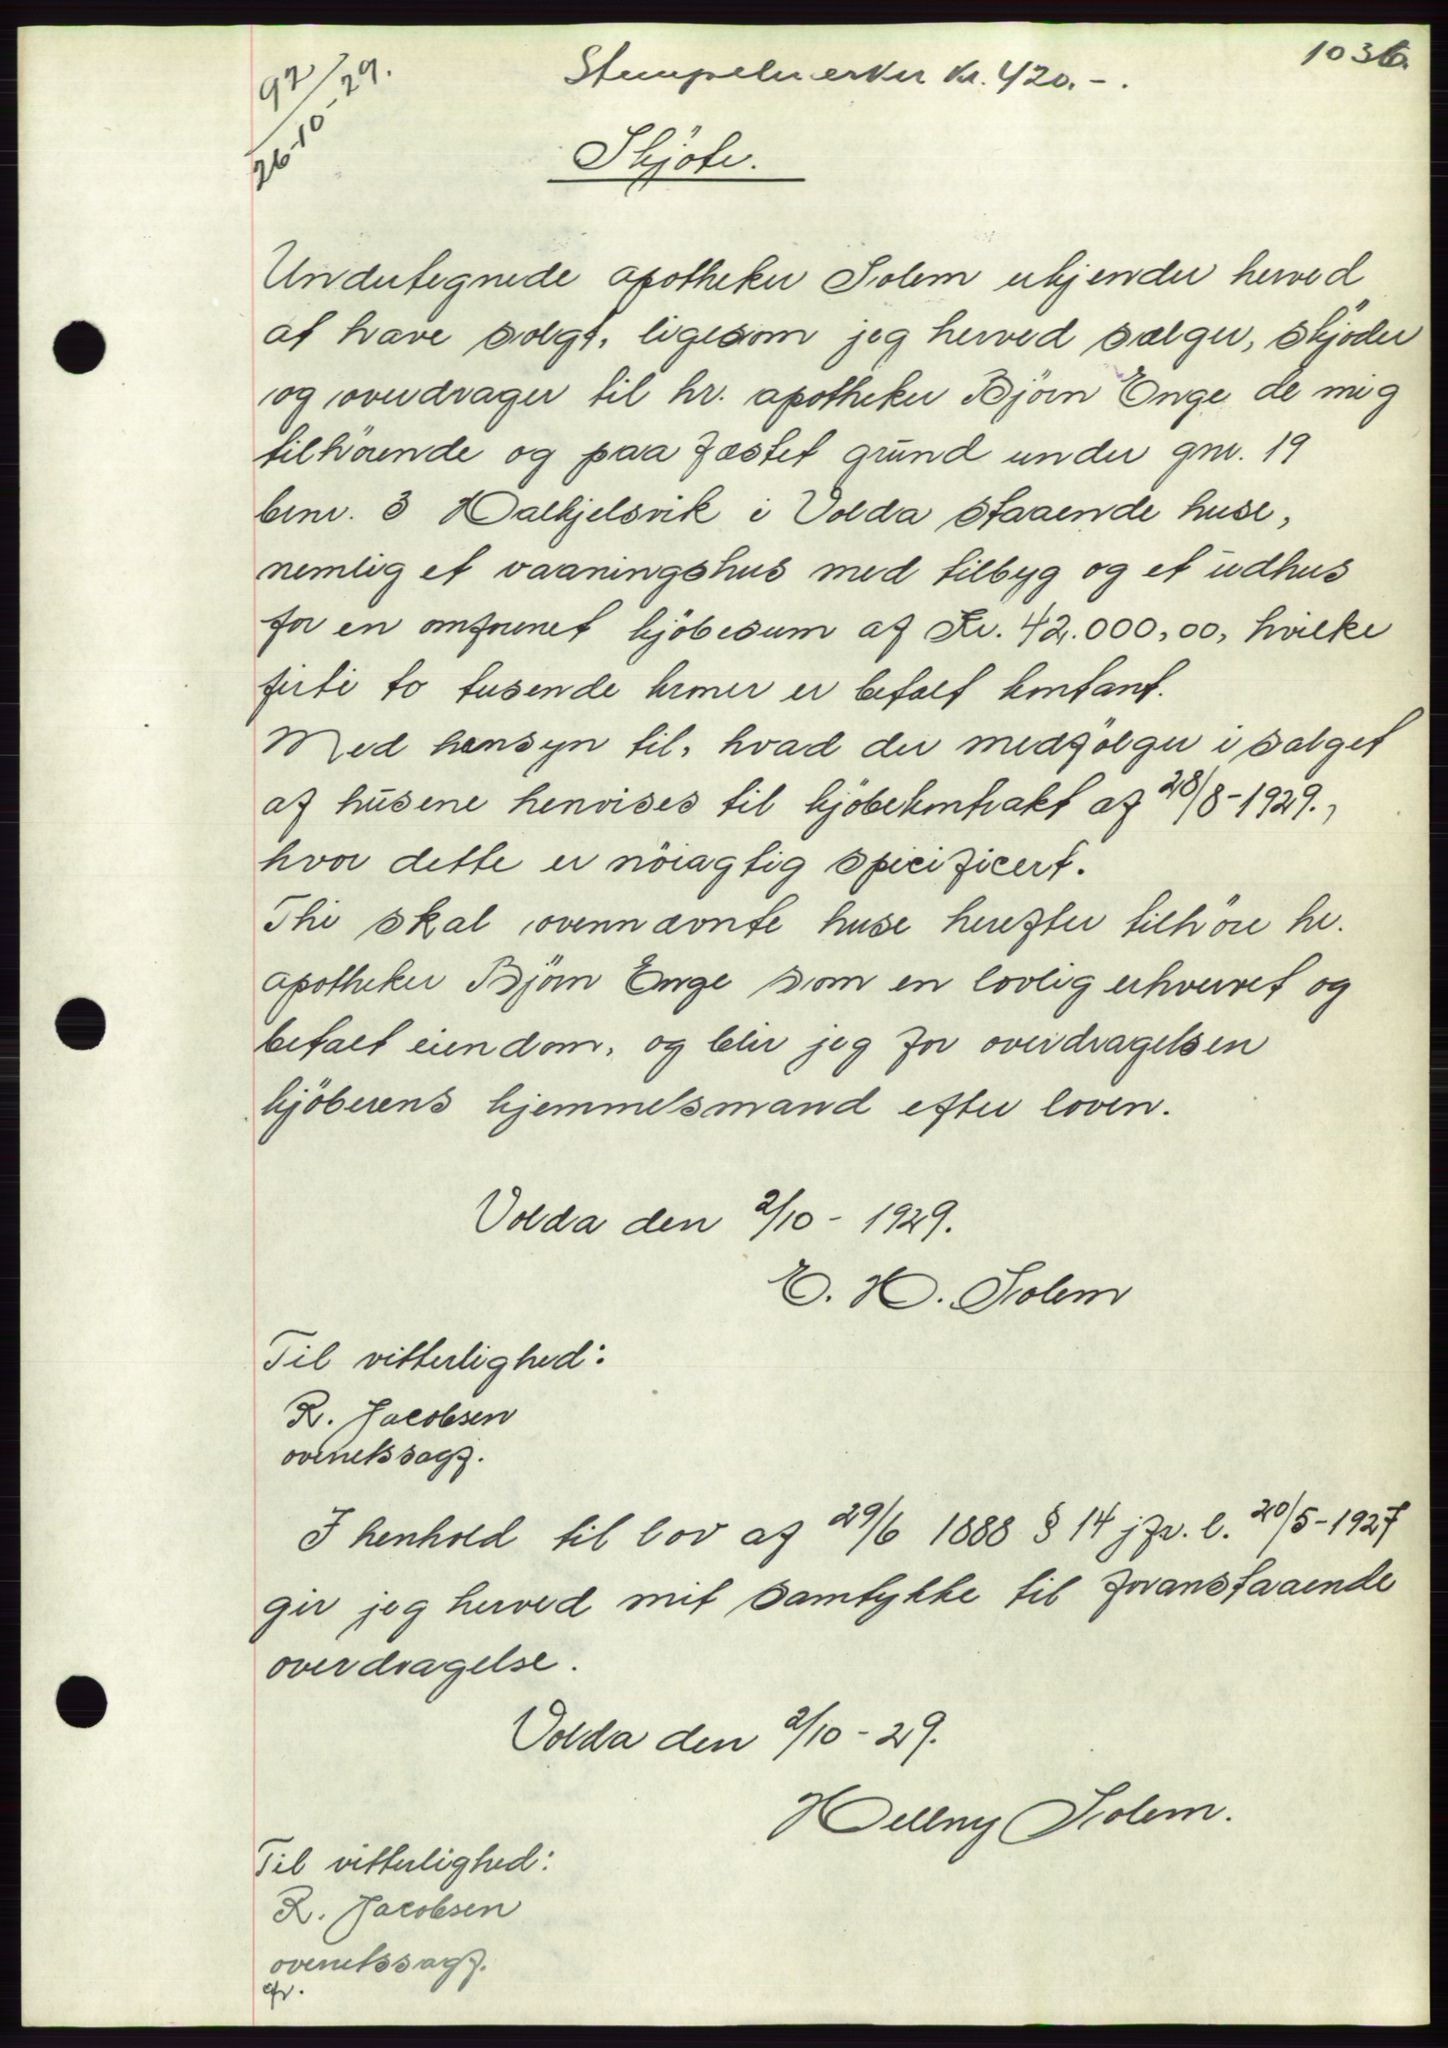 1036.
92/26-10-29.
Stempelmerker Kr. 420.-.
Skjöte.
Undertegnede apotheker Solem erkjender herved
at have solgt, ligesom jeg herved sælger, skjöder
og overdrager til hr. apotheker Björn Enge de mig
tilhörende og paa fæstet grund under gnr. 19
bnr. 3 Halkjelsvik i Volda staaende huse,
nemlig et vaaningshus med tilbyg og et udhus
for en omforenet kjöbesum af Kr. 42.000,00, hvilke
firti to tusende kroner er betalt kontant.
Med hensyn til, hvad der medfölger i salget
af husene henvises til kjöbekontrakt af 28/8-1929.,
hvor dette er nöiagtig spicificert.
Thi skal ovennævnte huse herefter tilhöre hr.
apotheker Björn Enge som en lovlig erhvervet og
betalt eiendom, og blir jeg for overdragelsen
kjöberens hjemmelsmand efter loven.
Volda den 2/10 - 1929.
E. H. Solem
Til vitterlighed:
R. Jacobsen
overretssagf.
I henhold til lov af 29/6 1888 § 14 jfr. l. 20/5-1927
gir jeg herved mit samtykke til foranstaaende
overdragelse.
Volda den 2/10 - 29.
Hellny Solem.
Til vitterlighed:
R. Jacobsen
overretssagf.